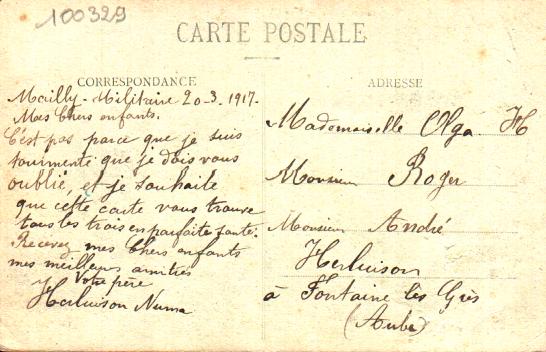 100329
CARTE POSTALE
CORRESPONDANCE
Mailly-Militaire 20-3-1917-
Mes Chers enfants.
C'est pas parce que je suis
tourmenté que je dois vous
oublié, et je souhaite
que cette carte vous trouve
tous les trois en parfaite santé.
Recevez mes Chers enfants
mes meilleurs amitiés
Votre père
Herluison Numa
ADRESSE
Mademoiselle Olga H
Monsieur Roger
Monsieur André
Herluison
à Fontaine lès Grès
(Aube)